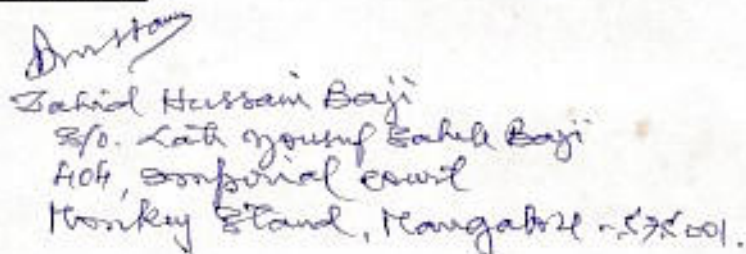 Zahid Hussain Baji
S/o. Late Yousuf Saheb Baji
404, Imperial Court
Monkey Stand, Mangalore - 575001.